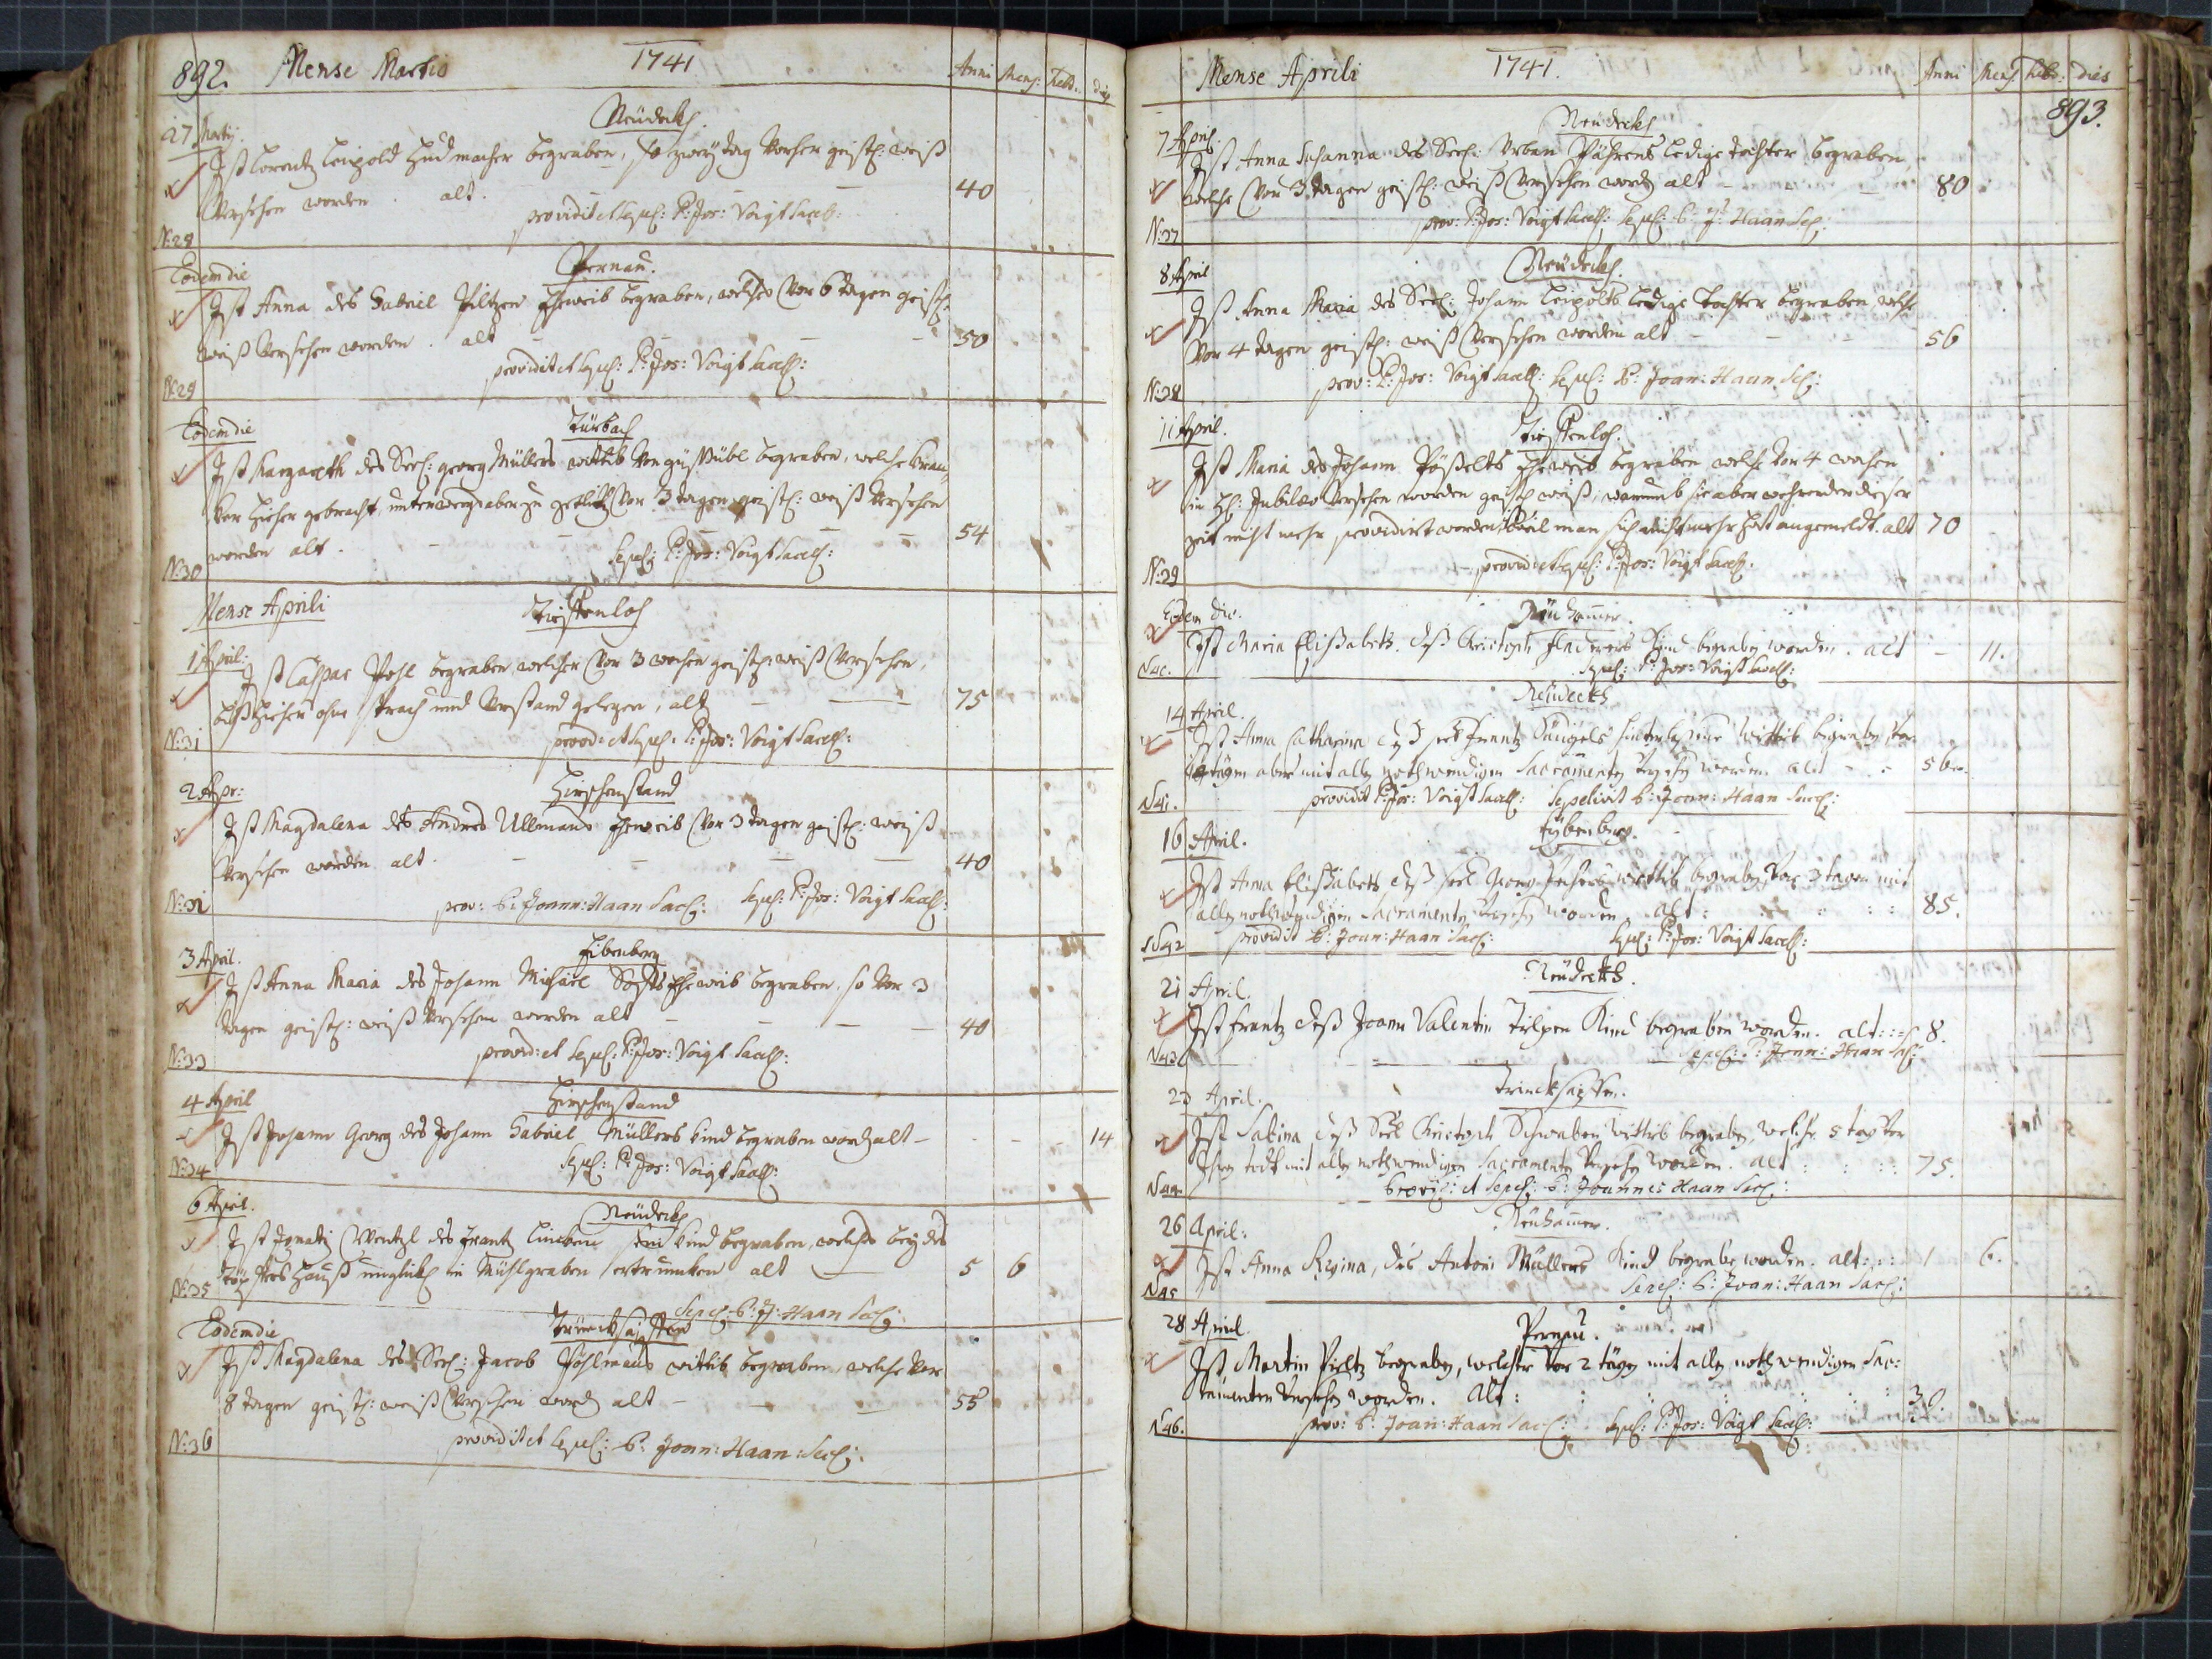 892. Mense Martio 1741 Anni Mens: Hebd. dies
27 Martij. Neüdeckh.
Ist Lorentz Leipold Hudmacher begraben, so zweÿ tag vorher geistl: weiß
versehen worden. alt. 40
providit et Sepel: P: Jos: Voigt Sacell:
N:28
Eodem die Pernau.
Ist Anna des Gabriel Piltzen Eheweib begraben, welche vor 6 tagen geistl:
weiß versehen worden. alt 50
providit et Sepel: P: Jos: Voigt Sacell:
N:29
Eodem die
Ist Margareth des Seel: Georg Müllers wittib von begraben, welche
hieher gebracht, unterwegs aber vor 3 tagen geistl: weiß versehen
worden alt. 54
Sepel: P: Jos: Voigt Sacell:
N:30
Mense Aprili
1 April:
Ist Caspar Pohl begraben, welcher vor 3 wochen geistl: weiß versehen,
biß hieher ohne sprach und verstand gelegen, alt 75
provid: et Sepel: P: Jos: Voigt Sacell:
N:31
2 Apr: Hirschenstand
Ist Magdalena des Andres Ullmans Eheweib vor 3 tagen geistl: weiß
versehen worden alt. 40
prov: P: Joann: Haan Sacl: Sepel: P: Jos: Voigt Sacell:
N:32
3 April. Eibenberg
Ist Anna Maria des Johann Michael Eheweib begraben, so vor 3
tagen geistl: weiß versehen worden alt 40
provid: et Sepel: P: Jos: Voigt Sacell:
N:33
4 April Hirschenstand
Ist Johann Georg des Johann Gabriel Müllers kind begraben word alt 14
Sepel: P: Jos: Voigt Sacell:
N:34
6 April. Neüdeckh
Ist Ignatz Wentzl des Frantz kind begraben, welches beÿ des
Hauß unglückl: in Mühlgraben ertruncken alt 5 6
N:35
Sepel: P: J: Haan Sacl:
Eodem die Trincksaiffen
Ist Magdalena des Seel: Jacob Pöhlmans wittib begraben, welche vor
8 tagen geistl: weiß versehen word alt 55
providit et Sepel: P: Joan: Haan: Sacl:
N:36
Mense Aprili 1741. Anni Mens Hebd: dies
893.
7 April. Neüdeckh
Ist Anna Susanna des Seel: Urban ledige tochter begraben
welche vor 3 tagen geistl: weiß versehen word alt 80
prov: P: Jos: Voigt Sacell: Sepel: P: J: Haan Sacl:
N:37
8 April Neüdeckh.
Ist Anna Maria des Seel: Johann Leipolts ledige tochter begraben, welche
vor 4 tagen geistl: weiß versehen worden alt 56
prov: P: Jos: Voigt Sacell: Sepel: P: Joan: Haan Sacl:
N:38
11 April.
Ist Maria des Johann Pößelts Eheweib begraben welche vor 4 wochen
in H: Jubilaeo versehen worden geistl: weiß, warumb sie aber wehrender dieser
zeit nicht mehr providirt worden, weil man sich nicht mehr hat angemeldt. alt 70
provid: et Sepel: P: Jos: Voigt Sacell:
N:39
Eodem die. Neühamer.
Ist Maria Elisabeth deß Christoph Kind begraben worden. alt 11.
Sepel: P: Jos: Voigt Sacell:
N40.
14 April. Neüdeckh
Ist Anna Catharina deß Seel Frantz hinterlassene Wittib begraben vor
tägen aber mit allen nothwendigen Sacramenten versehen worden. alt 56.
providit P: Jos: Voigt Sacell: Sepelivit P: Joan: Haan Sacel:
N41.
16 April. Eÿbenberg.
Ist Anna Elisabeth deß Seel Georg wittib begraben, vor 3 tagen mit
allen nothwendigen Sacramenten versehen worden. alt: 85.
providit P: Joan: Haan Sacl: Sepel: P: Jos: Voigt Sacell:
N42
21 April. Neüdeckh.
Ist Frantz deß Joann Valentin Kind begraben worden. alt: 8.
Sepel: P: Joan: Haan Sacl:
N43
23 April. Trincksaiffen.
Ist Sabina deß Seel Christoph Schwaben Wittib begraben, welche 5 tag vor
Ihren todt mit allen nothwendigen Sacramenten versehen worden. alt: 75.
Provid: et Sepel: P: Joannes Haan Sacl:
N44
26 April: Neühamer.
Ist Anna Regina, des Antoni Müllers Kind begraben worden. alt: 1 6.
Sepel: P: Joan: Haan Sacl:
N45
28 April. Pernau.
Ist Martin Pieltz begraben, welcher vor 2 tägen mit allen nothwendigen Sac:
ramenten versehen worden. Alt: 30.
prov: P: Joan: Haan Sacl: Sepel: P: Jos: Voigt Sacell:
N46.